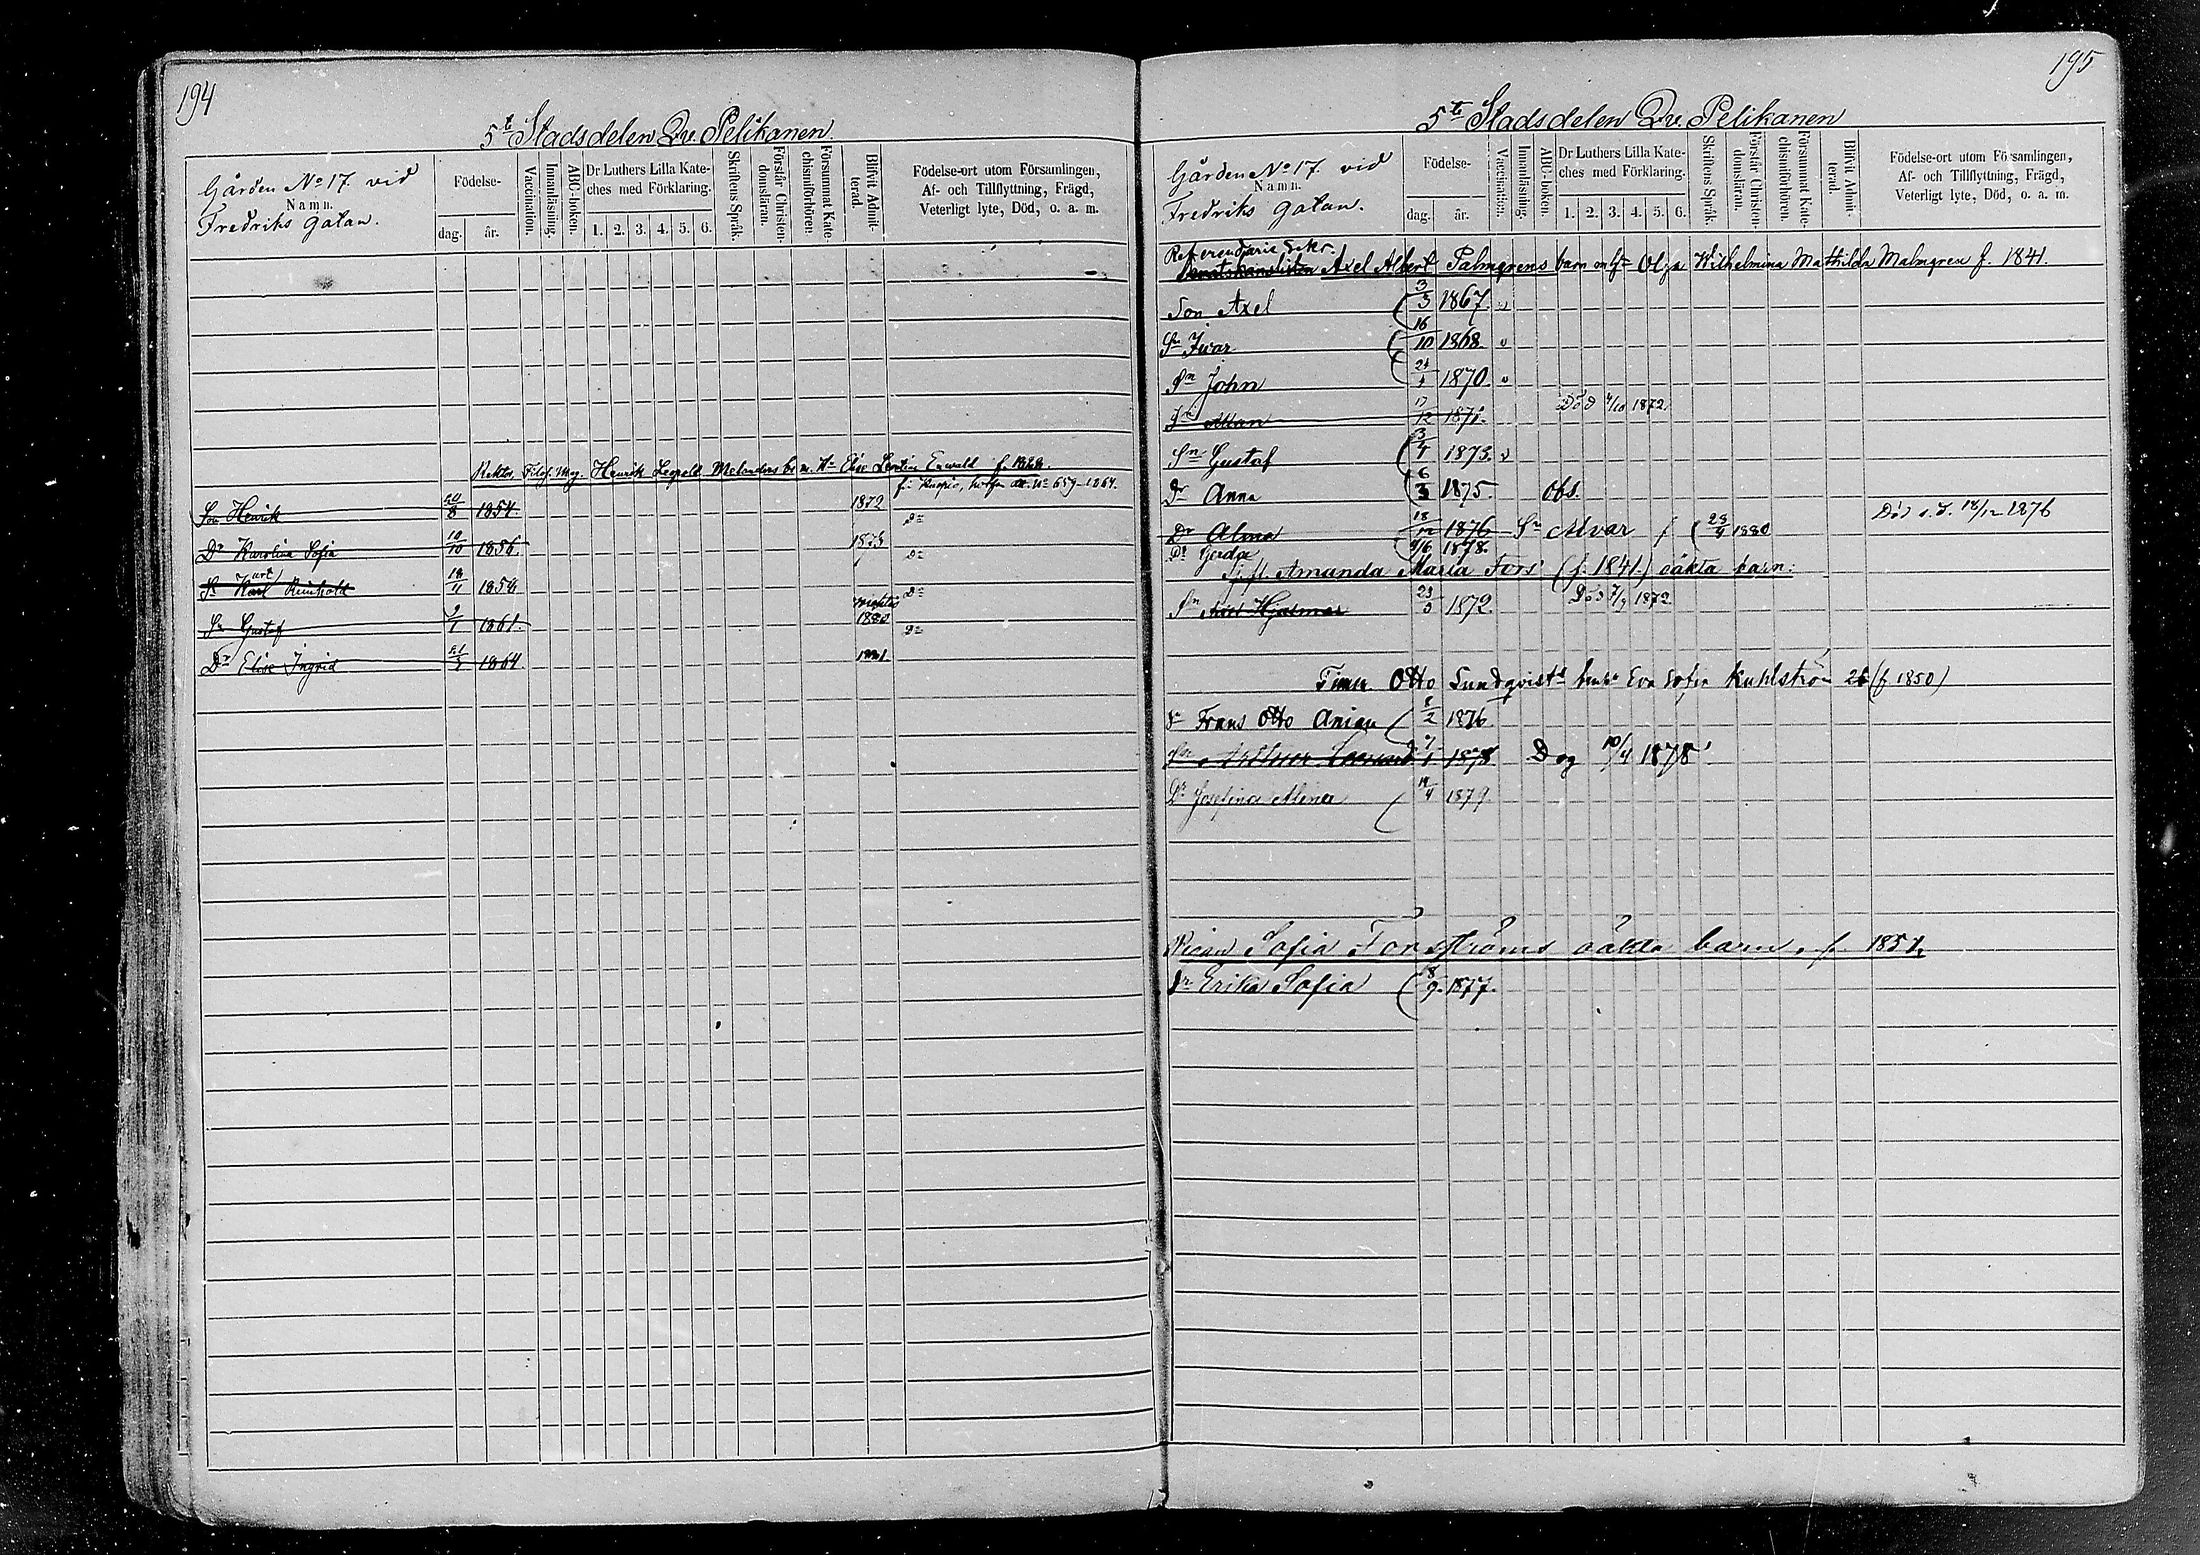 194
5te Stadsdelen Qv. Pelikanen
Gården No 17. vid
Namn.
Fredriks gatan.
Födelse-
dag.
år.
Vaccination.
Innanläsning.
ABC-boken.
Dr Luthers Lilla Kate-
ches med Förklaring.
1. 2. 3. 4. 5. 6.
Skriftens Språk.
Förstår Christen-
domsläran.
Försummat Kate-
chismiförhören.
Blifvit Admit-
terad.
Födelse-ort utom Församlingen,
Af- och Tillflyttning, Frägd,
Veterligt lyte, Död, o. a. m.
Rektor, Filof. Mag. Henrik Leopold Melanders b. m. H. Elise Enwald f.
659-1864.
Son Henrik 1854 1872 Do
Dr Karolina Sofia 10/10 1856. 1873 Do
Sn Karl Reinhold 1858 Do
Sn Gustaf 1861. 1880 Do
Dr Elise Ingrid 1864 1881.
195
5te Stadsdelen Qv. Pelikanen
Gården No 17. vid
Namn.
Fredriks gatan.
Födelse-
dag.
år.
Vaccination.
Innanläsning.
ABC-boken.
Dr Luthers Lilla Kate-
ches med Förklaring.
1. 2. 3. 4. 5. 6.
Skriftens Språk.
Förstår Christen-
domsläran.
Försummat Kate-
chismiförhören.
Blifvit Admit-
terad.
Födelse-ort utom Församlingen,
Af- och Tillflyttning, Frägd,
Veterligt lyte, Död, o. a. m.
Referendarie Sekr.
Senatskanslisten Axel Albert Palmgrens barn m. Olga Wilhelmina Mathilda Malmgren f. 1841.
Son Axel 3/3 1867. v
Sn Ivar 16/10 1868. v
Sn John 1870. v
Sn Allan 17/12 1871. Död 1872.
Sn Gustaf 1873. v
Dr Anna 1875. Obs.
Dr Alma 18/12 1876 Sn Alvar f 1880 Död s. d. 18/12 1876
Dr Gerda 1878.
Amanda Maria Fors (f. 1841.) oäkta barn:
Sn Hjalmar 1872 Död 1872.
Timm. Otto Lundqvists Eva Sofia Kuhlström (f 1850)
Sn Frans Otto Anian 8/2 1876
Sn Arthur 1878 Dog 10/4 1878
Dr Josefina Alina 1879.
Pigan Sofia Forsströms oäkta barn. f. 1851.
Dr Erika Sofia 8/9 1877.